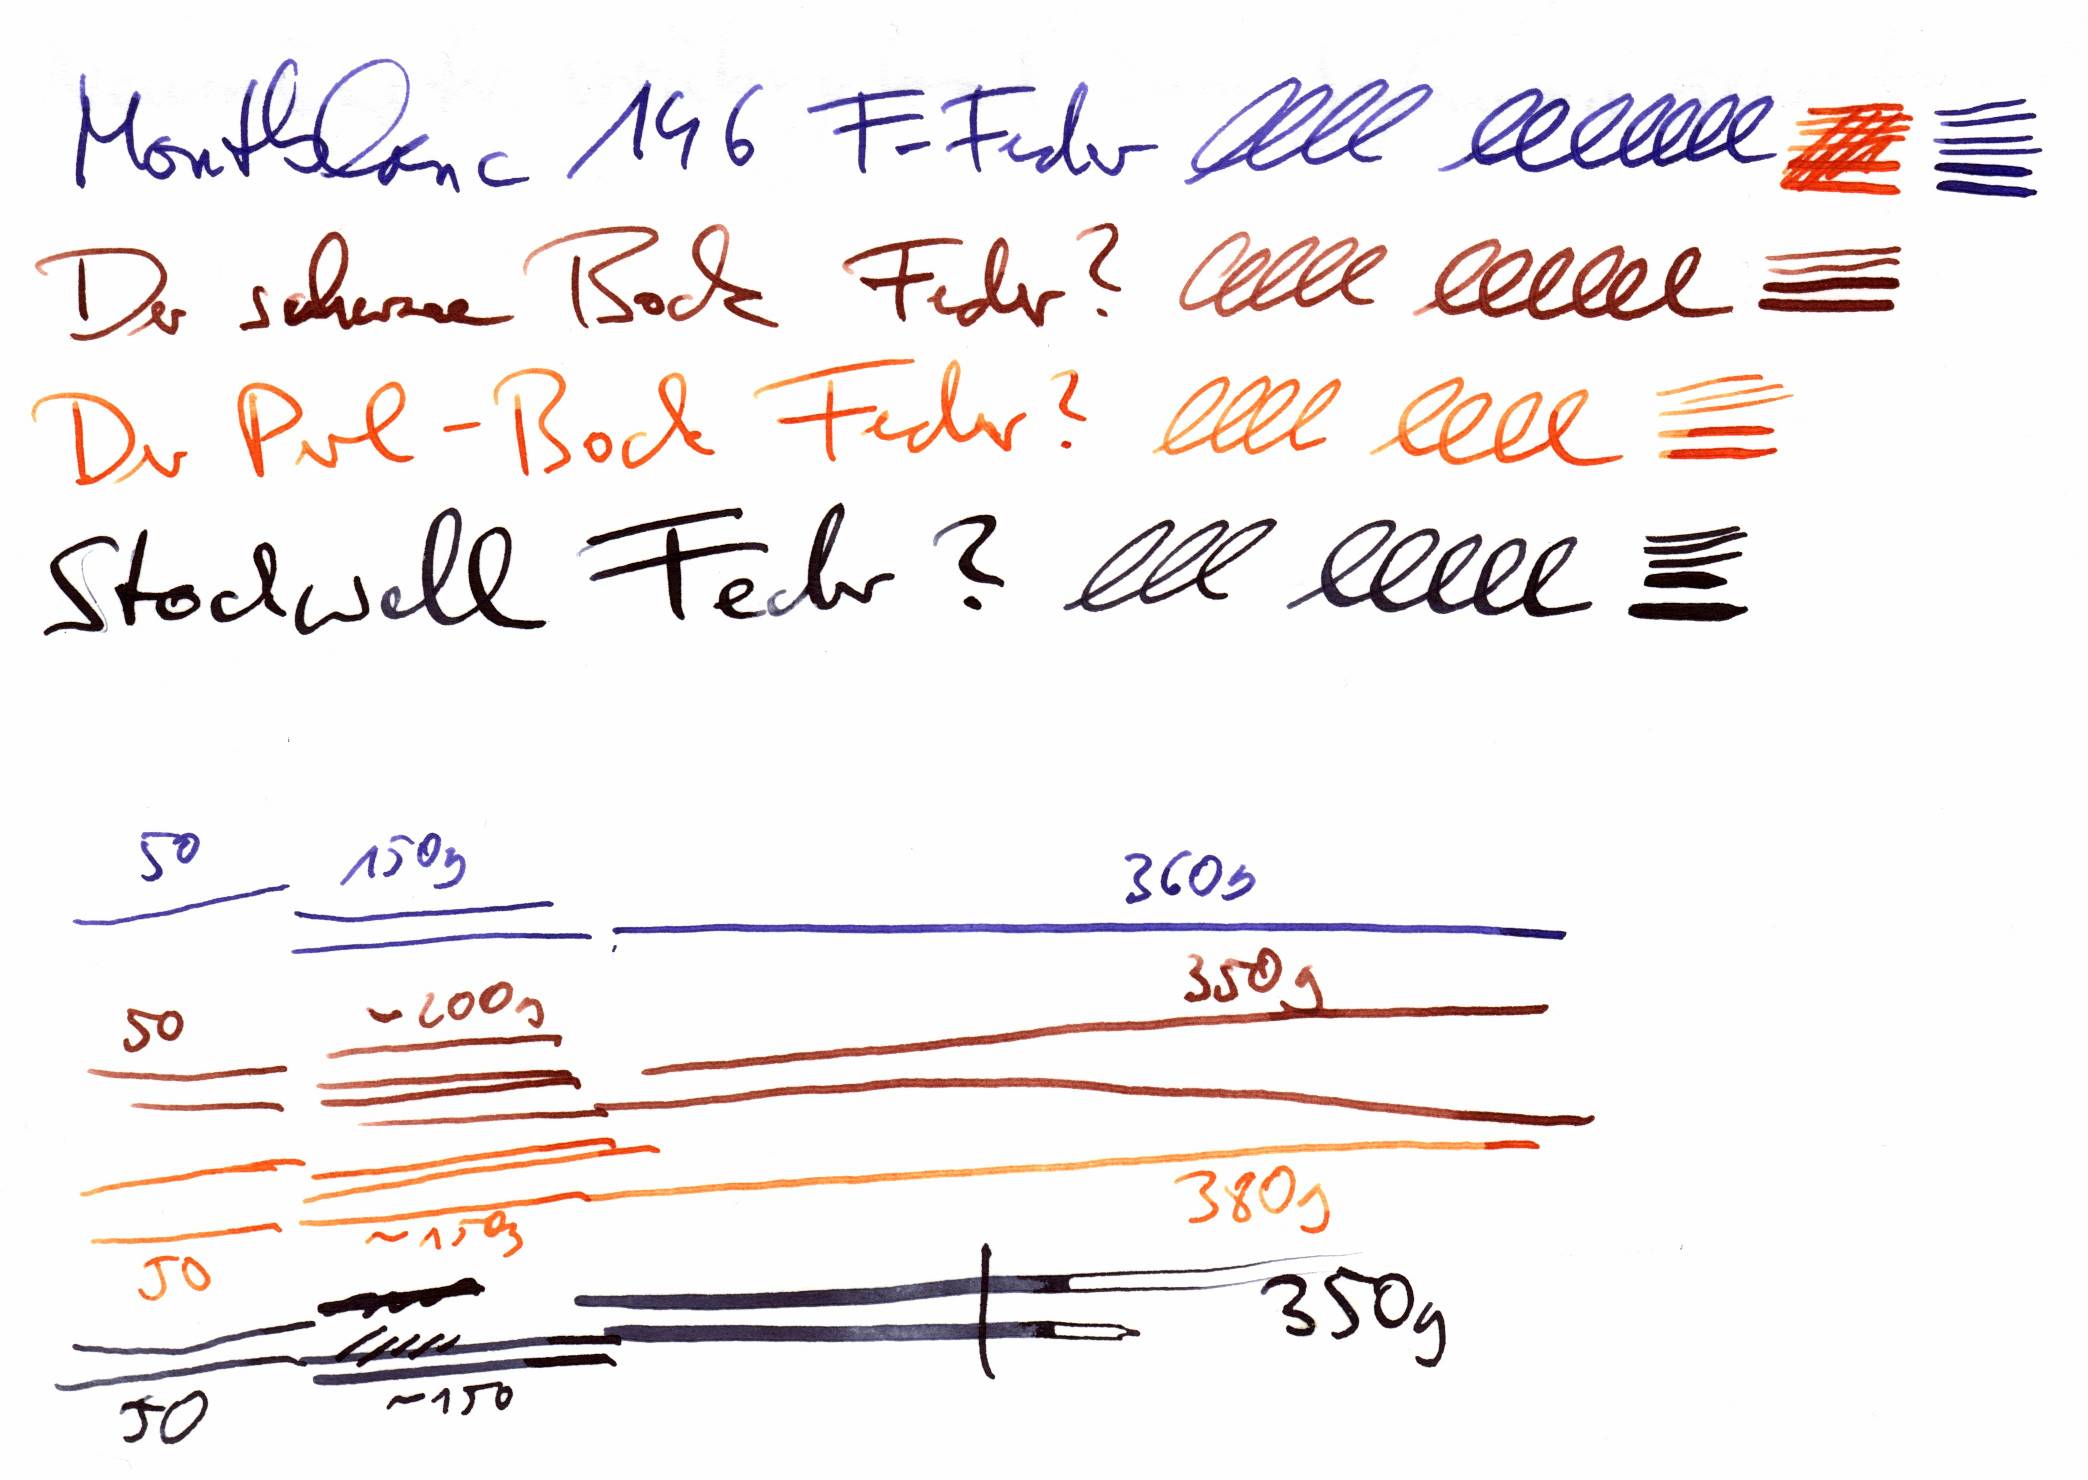 Montblanc 146 F-Feder
Der schwarze Bock Feder?
Der Perl-Bock Feder?
Stockwell Feder?
50 150g 360g
50 ~200g 350g
50 ~150g 380g
50 ~150 350g